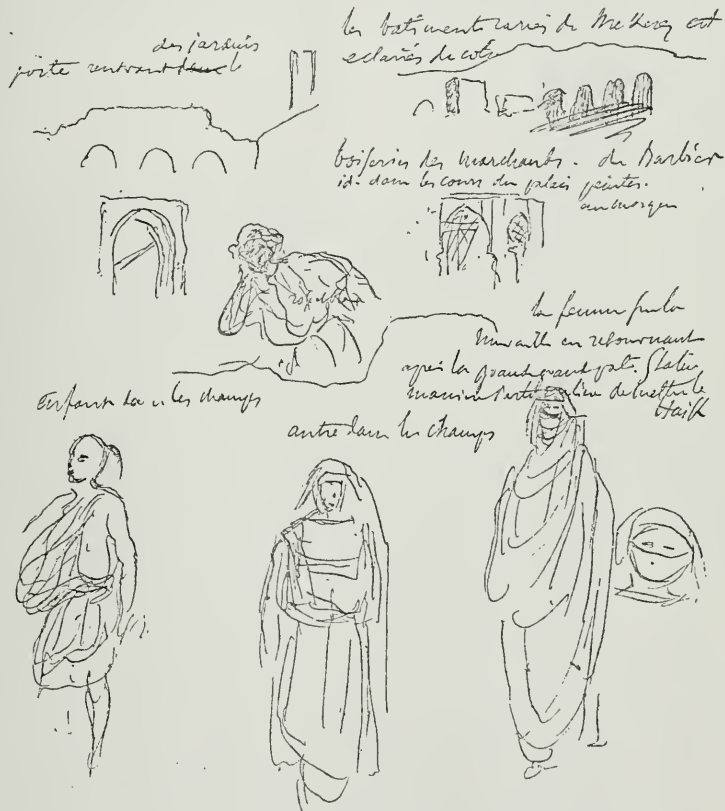 des jardins
porte rentrant dans le
les batiments variés de Meknez est
eclairés de coté
boiseries des marchants. du Barbier
id. dans les cours du palais peintes.
la femme sur la
muraille en retournant
après la grande
manière de mettre le
Haïk
Enfant dans les champs
autre dans les champs